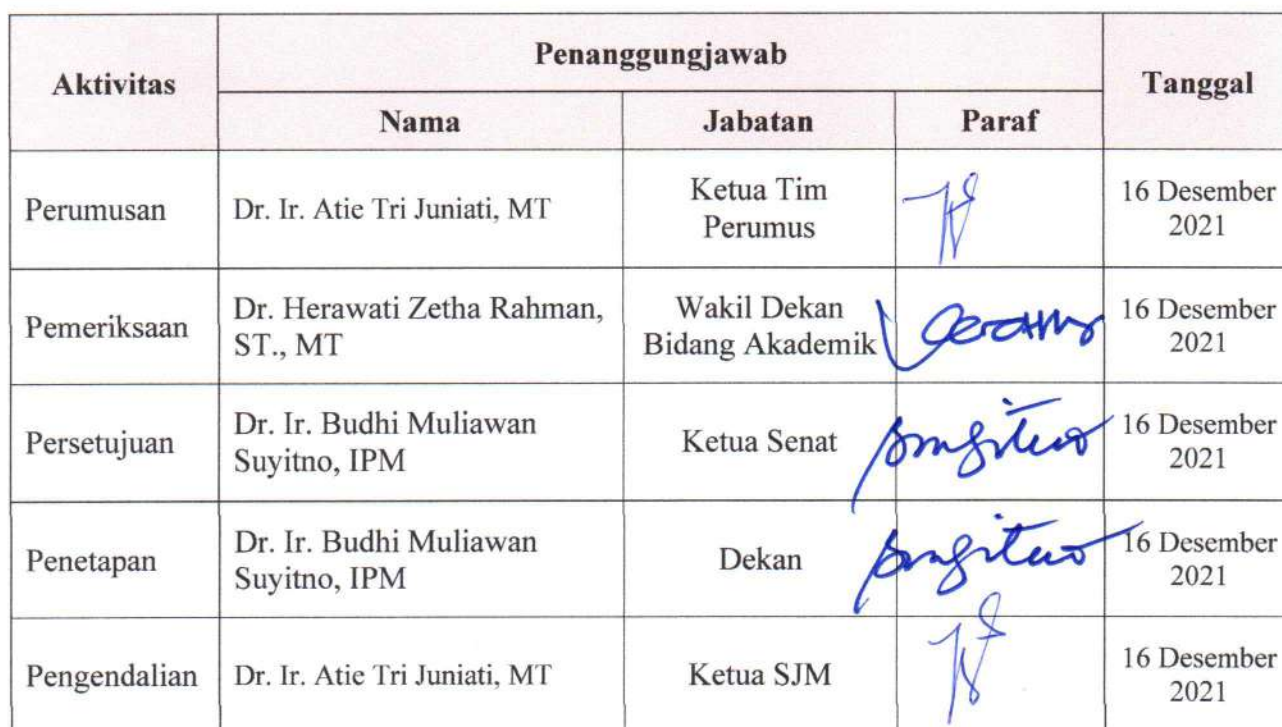 Aktivitas
Penanggungjawab
Tanggal
Nama
Jabatan
Paraf
Perumusan
Dr. Ir. Atie Tri Juniati, MT
Ketua Tim
Perumus
16 Desember
2021
Pemeriksaan
Dr. Herawati Zetha Rahman,
ST., MT
Wakil Dekan
Bidang Akademik
16 Desember
2021
Persetujuan
Dr. Ir. Budhi Muliawan
Suyitno, IPM
Ketua Senat
16 Desember
2021
Penetapan
Dr. Ir. Budhi Muliawan
Suyitno, IPM
Dekan
16 Desember
2021
Pengendalian
Dr. Ir. Atie Tri Juniati, MT
Ketua SJM
16 Desember
2021